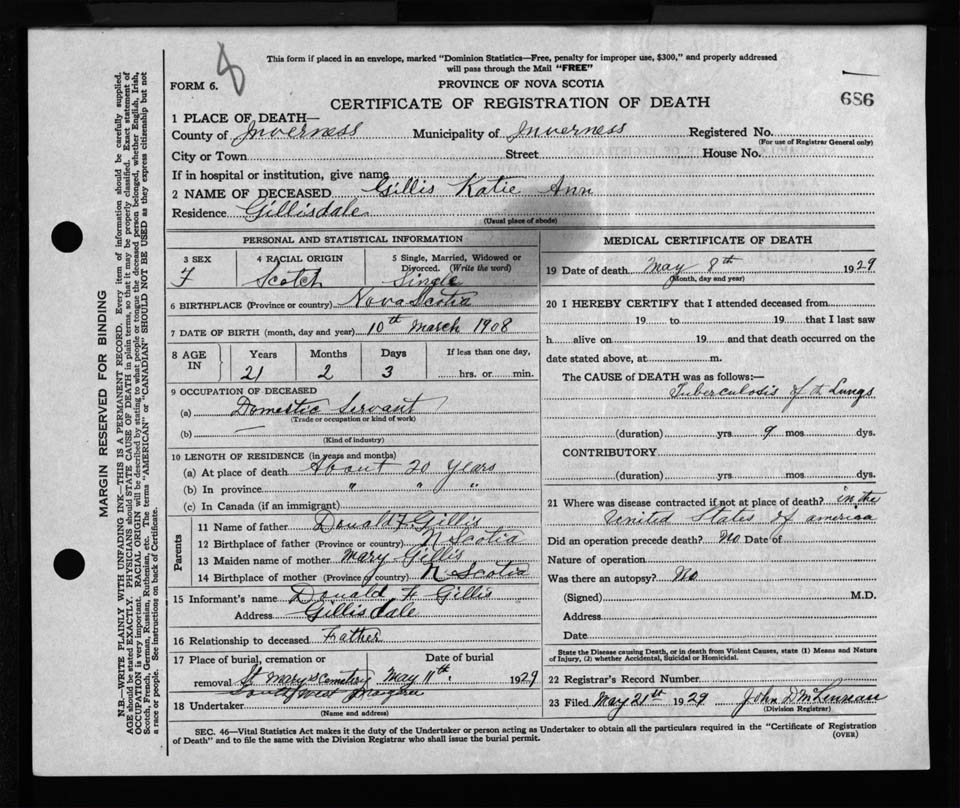 8
This form if placed in an envelope, marked "Dominion Statistics—Free, penalty for improper use, $300," and properly addressed
will pass through the Mail "FREE"
FORM 6.
PROVINCE OF NOVA SCOTIA
CERTIFICATE OF REGISTRATION OF DEATH
686
1 PLACE OF DEATH—
County of Inverness Municipality of Inverness Registered No.
(For use of Registrar General only)
City or Town Street House No.
If in hospital or institution, give name
2 NAME OF DECEASED Gillis Katie Ann
Residence Gillisdale
(Usual place of abode)
PERSONAL AND STATISTICAL INFORMATION
3 SEX 4 RACIAL ORIGIN 5 Single, Married, Widowed or
Divorced. (Write the word)
F Scotch Single
6 BIRTHPLACE (Province or country) Nova Scotia
7 DATE OF BIRTH (month, day and year) 10th March 1908
8 AGE IN Years Months Days If less than one day,
21 2 3 hrs. or min.
9 OCCUPATION OF DECEASED
(a) Domestic Servant
(Trade or occupation or kind of work)
(b) —
(Kind of industry)
10 LENGTH OF RESIDENCE (in years and months)
(a) At place of death About 20 Years
(b) In province " " "
(c) In Canada (if an immigrant)
Parents
11 Name of father Donald F Gillis
12 Birthplace of father (Province or country) N Scotia
13 Maiden name of mother Mary Gillis
14 Birthplace of mother (Province or country) N Scotia
15 Informant's name Donald F Gillis
Address Gillisdale
16 Relationship to deceased Father
17 Place of burial, cremation or Date of burial
removal St Mary's Cemetery May 11th. 1929
South West Margaree
18 Undertaker
(Name and address)
MEDICAL CERTIFICATE OF DEATH
19 Date of death May 8th 1929
(Month, day and year)
20 I HEREBY CERTIFY that I attended deceased from
19 to 19 that I last saw
h alive on 19 and that death occurred on the
date stated above, at m.
The CAUSE of DEATH was as follows:—
Tuberculosis of th Lungs
(duration) yrs 9 mos dys.
CONTRIBUTORY
(duration) yrs mos dys.
21 Where was disease contracted if not at place of death? in the
United States of America
Did an operation precede death? No Date of
Nature of operation
Was there an autopsy? No
(Signed) M.D.
Address
Date
State the Disease causing Death, or in death from Violent Causes, state (1) Means and Nature
of Injury, (2) whether Accidental, Suicidal or Homicidal.
22 Registrar's Record Number
23 Filed May 21th 1929 John D McLennan
(Division Registrar)
SEC. 46—Vital Statistics Act makes it the duty of the Undertaker or person acting as Undertaker to obtain all the particulars required in the "Certificate of Registration
of Death" and to file the same with the Division Registrar who shall issue the burial permit. (OVER)
MARGIN RESERVED FOR BINDING
N.B.—WRITE PLAINLY WITH UNFADING INK—THIS IS A PERMANENT RECORD. Every item of information should be carefully supplied.
AGE should be stated EXACTLY. PHYSICIANS should STATE CAUSE OF DEATH in plain terms, so that it may be properly classified. Exact statement of
OCCUPATION is very important. RACIAL ORIGIN will be described by stating to what people or tongue the deceased person belonged, whether English, Irish,
Scotch, French, German, Russian, Ruthenian, etc. The terms "AMERICAN" or "CANADIAN" SHOULD NOT BE USED as they express citizenship but not
a race or people. See instructions on back of Certificate.